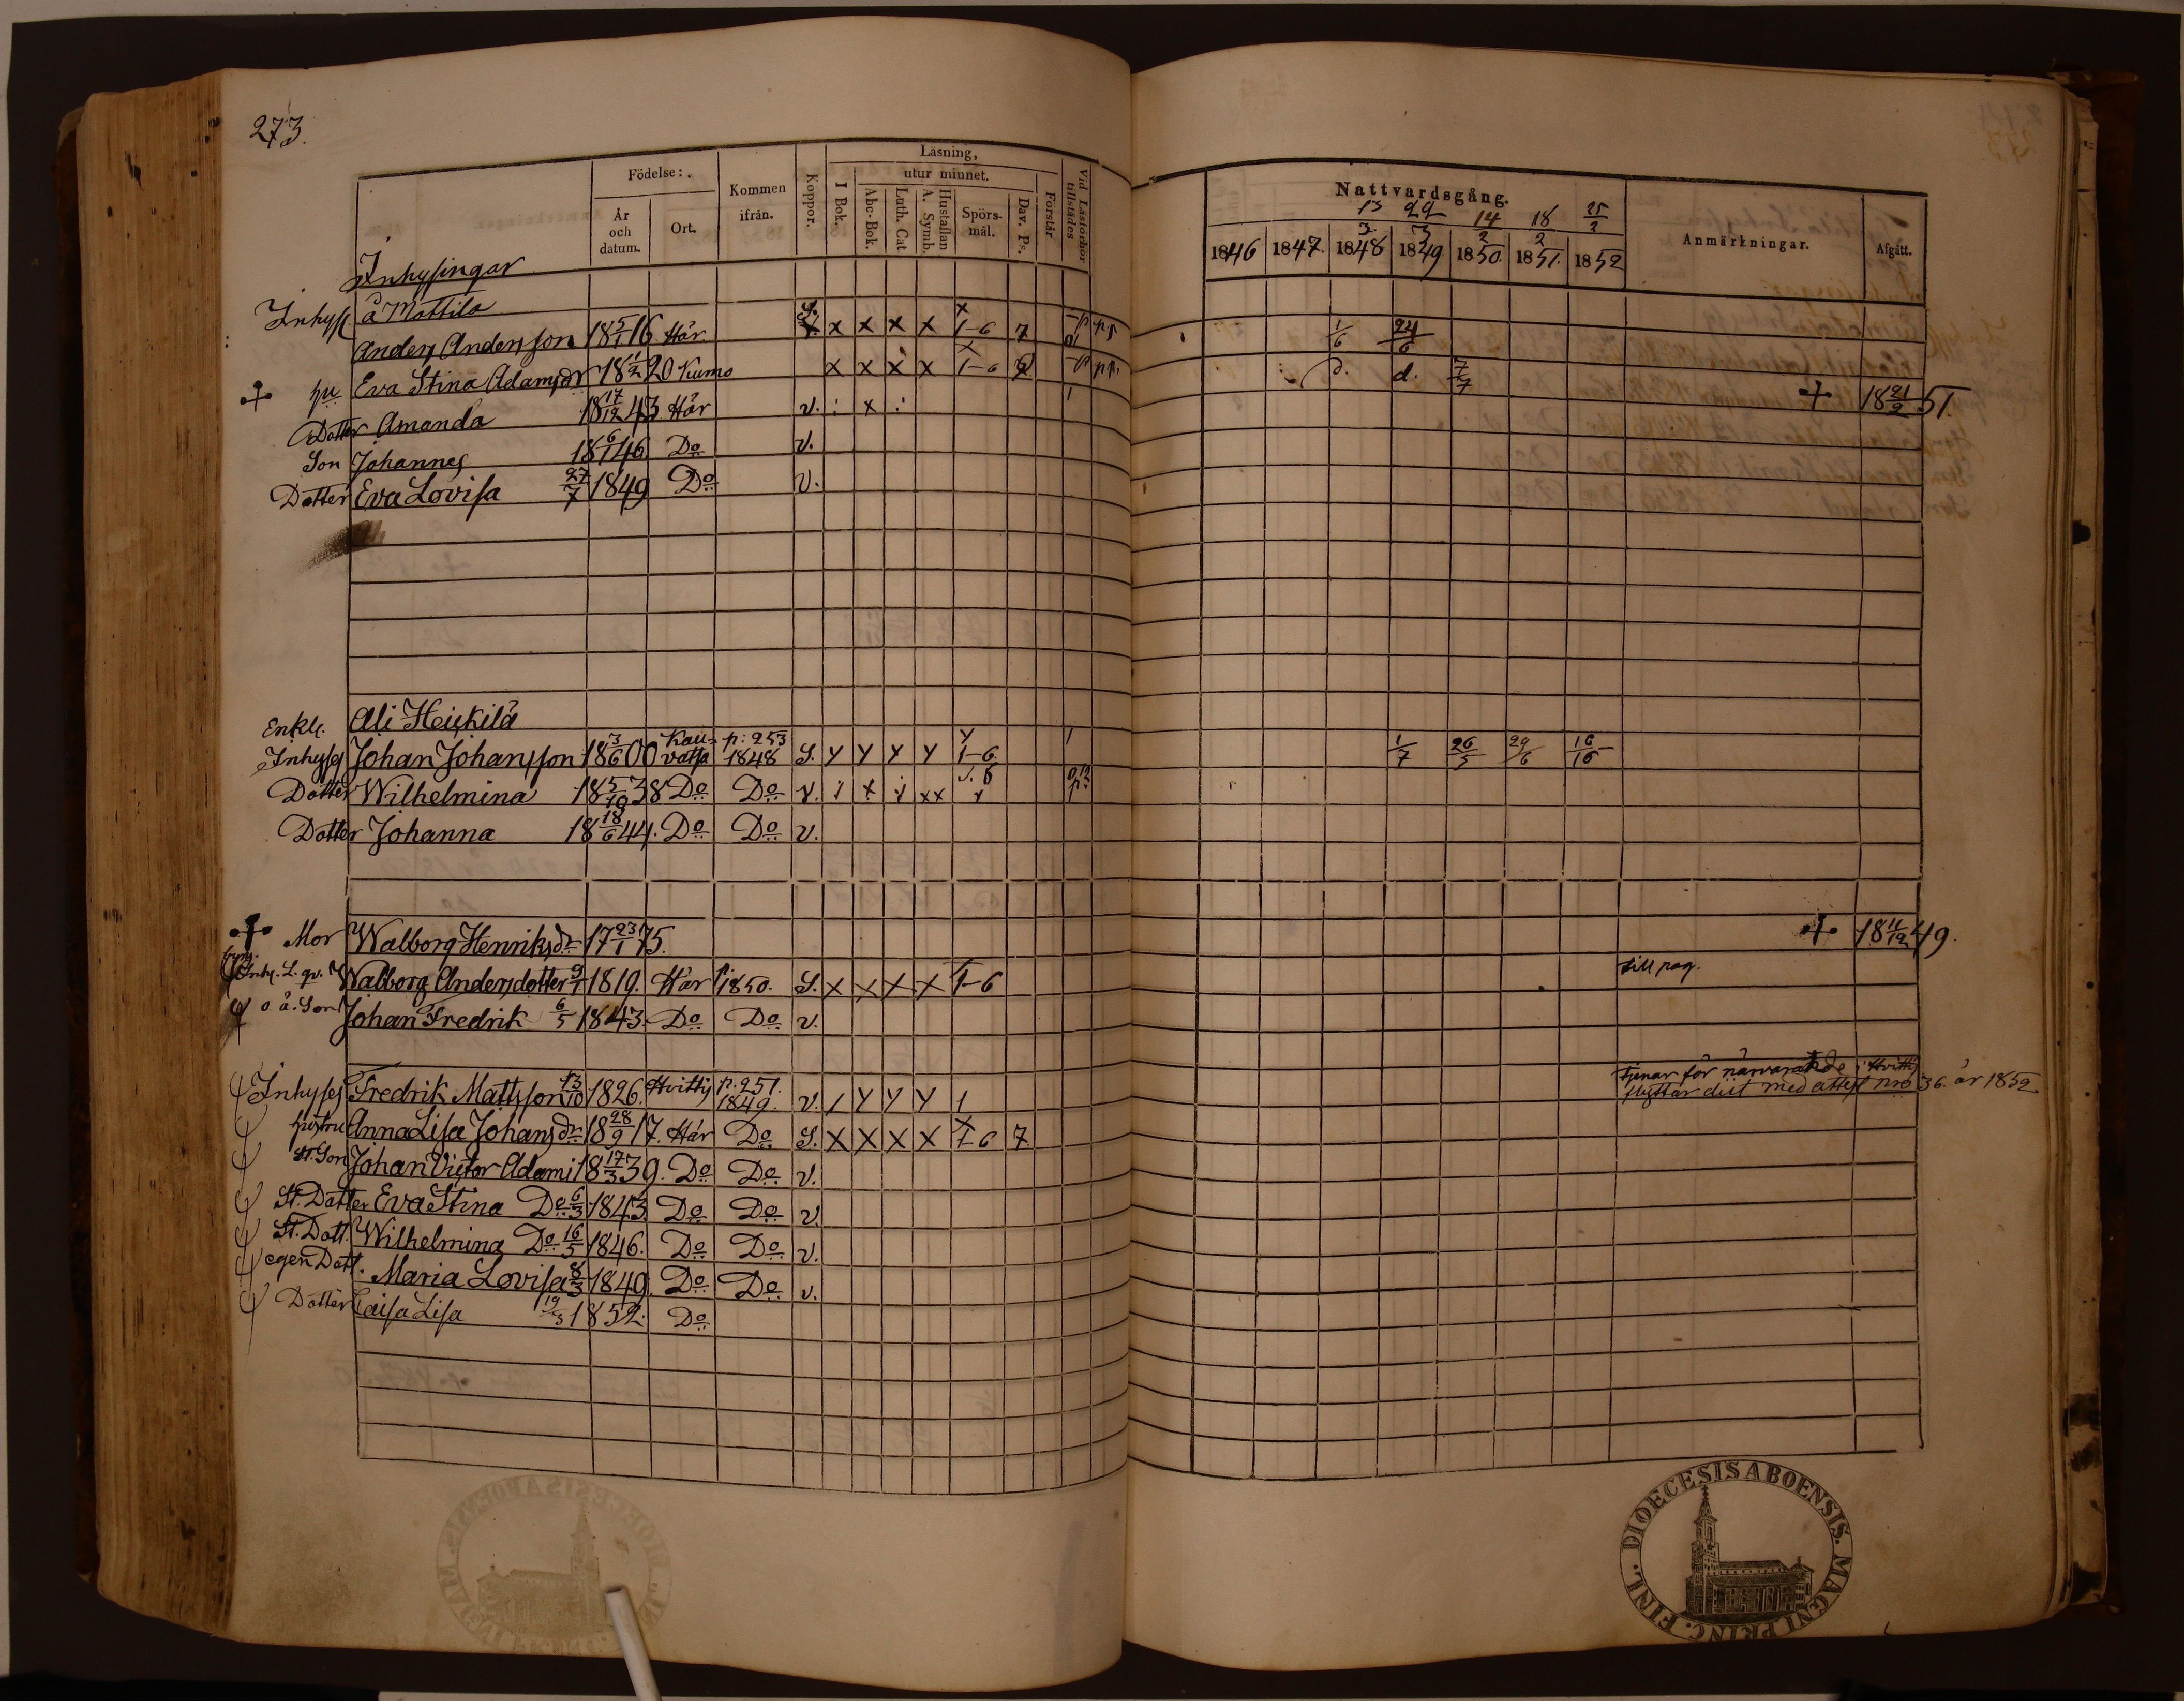 273.
Födelse:
År och datum.
Ort.
Kommen ifrån.
Koppor.
Läsning,
I Bok.
utur minnet.
Abc-Bok.
Luth. Cat
Hustaflan A. Symb.
Spörs-mål.
Dav. Ps.
Förstår
Vid Läsförhör tillstädes
Nattvardsgång.
13/3 22/3 14/2 18/2 25/2
1846 1847. 1848 1849. 1850. 1851. 1852
Anmärkningar.
Afgått.
Inhysingar
å Mattila
Inhys. Anders Andersson 18 5/1 16 Här. S. x x x x x 1-6 7 1/6 24/6
hu Eva Stina Adamsdr 18 1/2 20 Kumo x x x x x 1-6 d. 7/7 18 21/2 51.
Dotter Amanda 18 17/12 43 Här v. x
Son Johannes 18 6/1 46. Do v.
Dotter Eva Lovisa 27/7 1849 Do v.
Ali Heickilä
Enkl. Inhyses Johan Johansson 18 3/6 00 Kau-vatsa p: 253 1848 S. Y Y Y Y Y 1-6. 1/7 26/5 29/6
Dotter Wilhelmina 18 5/10 38 Do Do v.
Dotter Johanna 18 18/6 44. Do Do v.
Mor Walborg Henriksdr 17 23/1 75. 18 4/12 49.
Inh. L. qv. Walborg Andersdotter 9/1 1819. Här 1850. S. x x x x 1-6 till pag.
o ä. Son Johan Fredrik 6/5 1843. Do Do v.
Inhyses Fredrik Mattsson 13/10 1826. Hvittis p. 251. 1849. v. Y Y Y 1 tjenar för närvarande i Hvittis
flyttar dit med attest nro 36. år 1852
hustru Anna Lisa Johansdr 18 28/9 17. Här Do S. x x x x x 1-6 7.
St. Son Johan Victor Adami 18 17/3 39. Do Do v.
St. Dotter Eva Stina Do 6/3 1843. Do Do v.
St. Dott. Wilhelmina Do 16/5 1846. Do Do v.
egen Dott. Maria Lovisa 8/3 1849. Do Do v.
Dotter Caisa Lisa 19/3 1852. Do
DIOECESIS ABOENSIS. MAGNI PRINC. FINL.